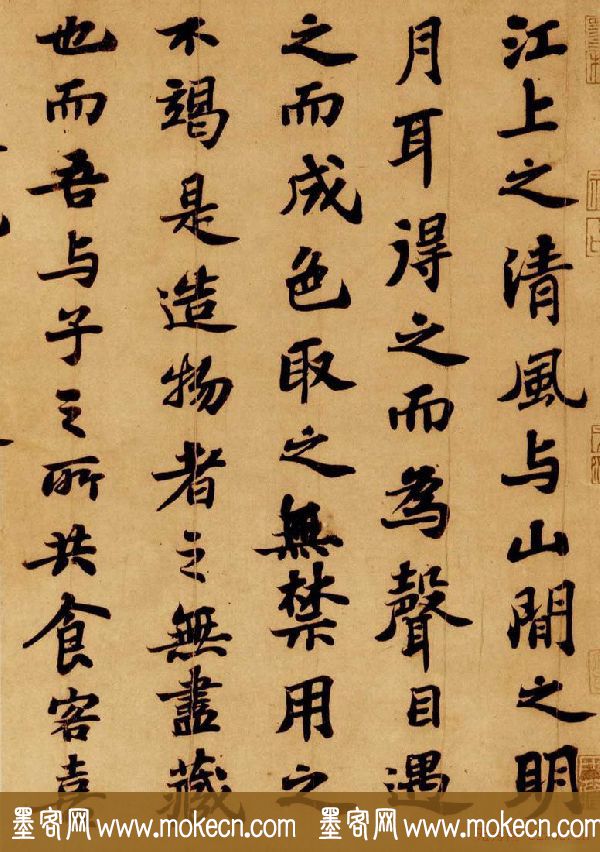 江上之清風与山間之明
月耳得之而為聲目遇
之而成色取之無禁用之
不竭是造物者之無盡藏
也而吾与子之所共食客喜
墨客网 www.mokecn.com 墨客网 www.mokecn.com